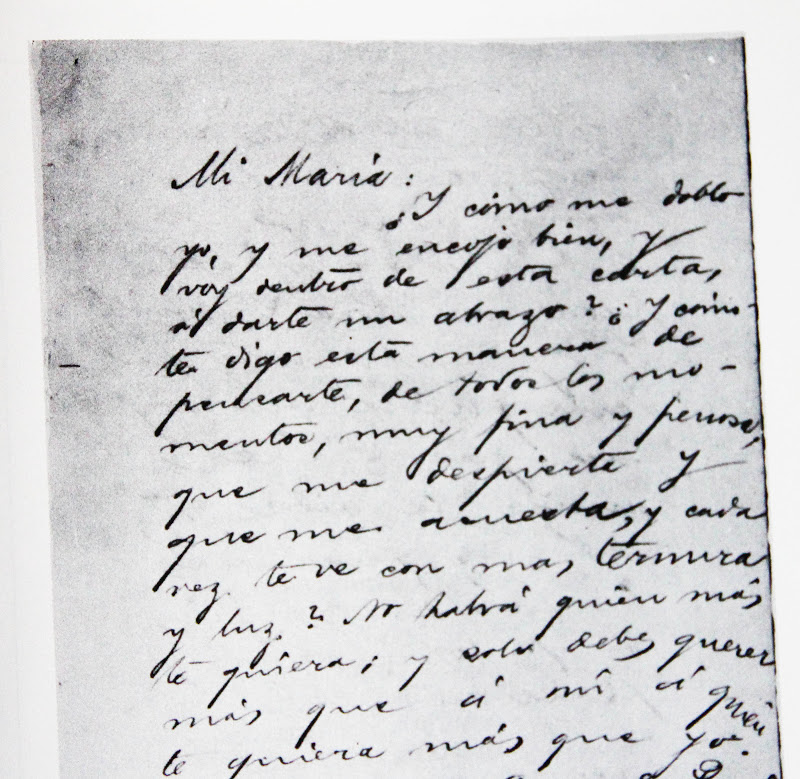 Mi María:
¿Y cómo me doblo
yo, y me encojo bien, y
voy dentro de esta carta,
á darte un abrazo? ¿Y cómo
te digo esta manera de
pensarte, de todos los mo-
mentos, muy fina y penosa,
que me despierta y
que me acuesta, y cada
vez te ve con mas ternura
y luz? No habrá quien más
te quiera; y solo debes querer
más que á mí á quien
te quiera más que yo.